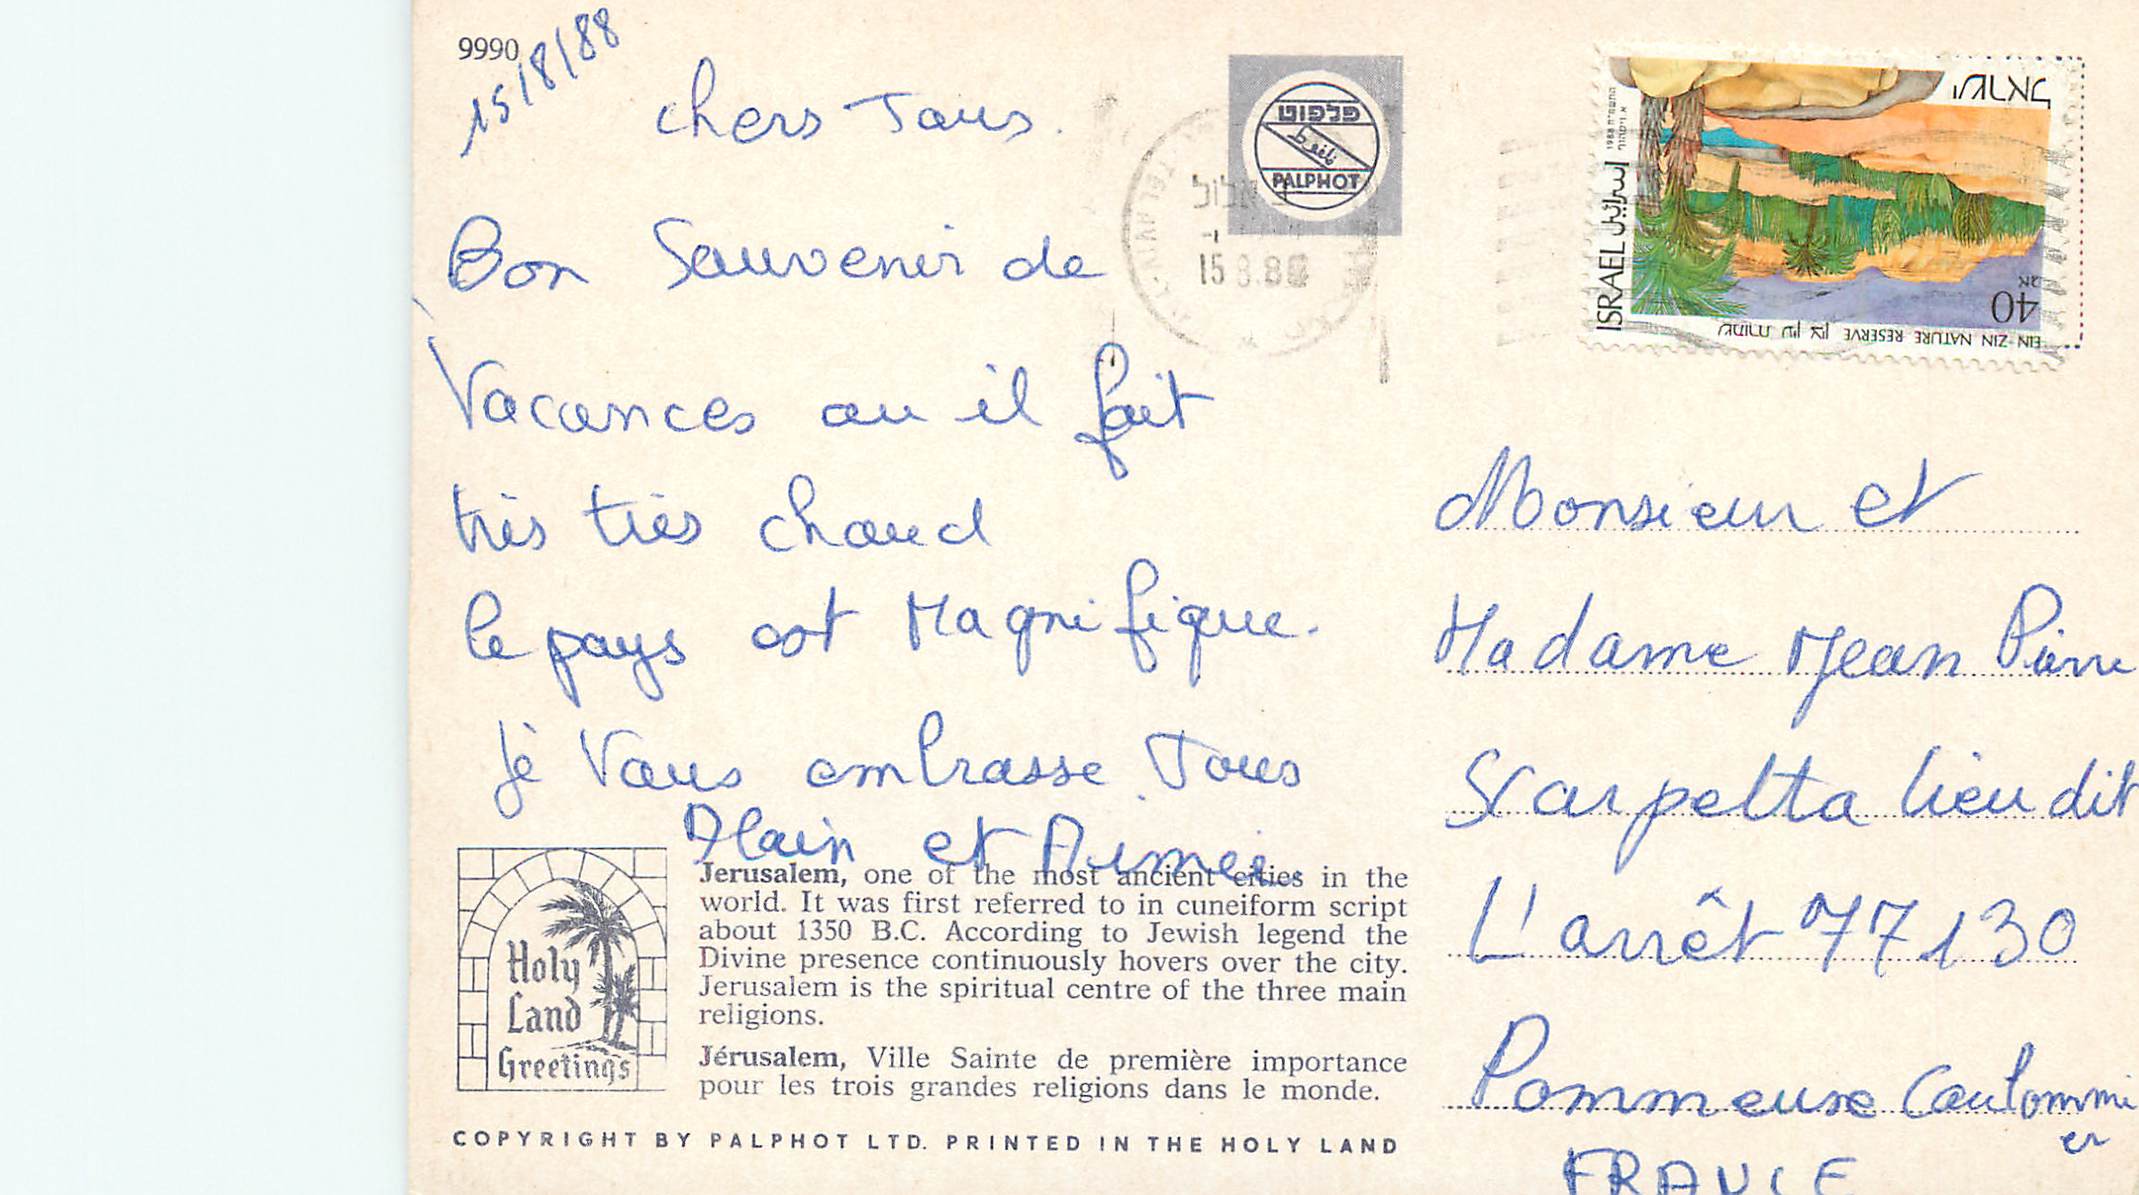 9990
15/8/88
chers Tous.
Bon Souvenir de
Vacances ou il fait
très très chaud
le pays est Magnifique.
Je Vous embrasse Tous
Alain et Aimée
פלפוט
PALPHOT
אלול
15 8.88
ישראל
ISRAEL
إسرائيل
1988
40
EIN ZIN NATURE RESERVE שמורת עין צין
Monsieur et
Madame Jean Pierre
Scarpetta lieu dit
L'arrêt 77130
Pommeuse Coulommi
er
FRANCE
Holy
Land
Greetings
Jerusalem, one of the most ancient cities in the
world. It was first referred to in cuneiform script
about 1350 B.C. According to Jewish legend the
Divine presence continuously hovers over the city.
Jerusalem is the spiritual centre of the three main
religions.
Jérusalem, Ville Sainte de première importance
pour les trois grandes religions dans le monde.
COPYRIGHT BY PALPHOT LTD. PRINTED IN THE HOLY LAND